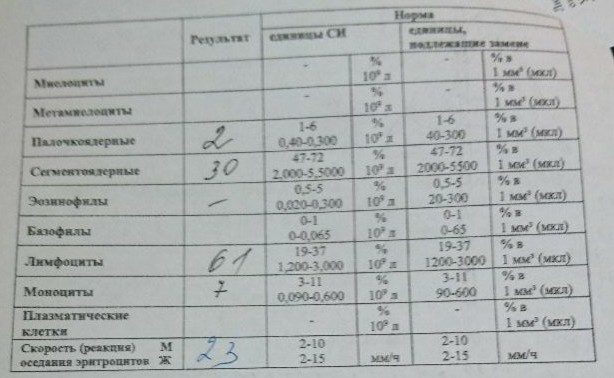 Норма
Результат единицы СИ единицы, подлежащие замене
Миелоциты - % 10⁹ л - % в 1 мм³ (мкл)
Метамиелоциты - % 10⁹ л - % в 1 мм³ (мкл)
Палочкоядерные 2 1-6 % 1-6 % в
0,40-0,300 10⁹ л 40-300 1 мм³ (мкл)
Сегментоядерные 30 47-72 % 47-72 % в
2,000-5,5000 10⁹ л 2000-5500 1 мм³ (мкл)
Эозинофилы – 0,5-5 % 0,5-5 % в
0,020-0,300 10⁹ л 20-300 1 мм³ (мкл)
Базофилы 0-1 % 0-1 % в
0-0,065 10⁹ л 0-65 1 мм³ (мкл)
Лимфоциты 61 19-37 % 19-37 % в
1,200-3,000 10⁹ л 1200-3000 1 мм³ (мкл)
Моноциты 7 3-11 % 3-11 % в
0,090-0,600 10⁹ л 90-600 1 мм³ (мкл)
Плазматические клетки - % 10⁹ л - % в 1 мм³ (мкл)
Скорость (реакция) М 23 2-10 2-10
оседания эритроцитов Ж 2-15 мм/ч 2-15 мм/ч